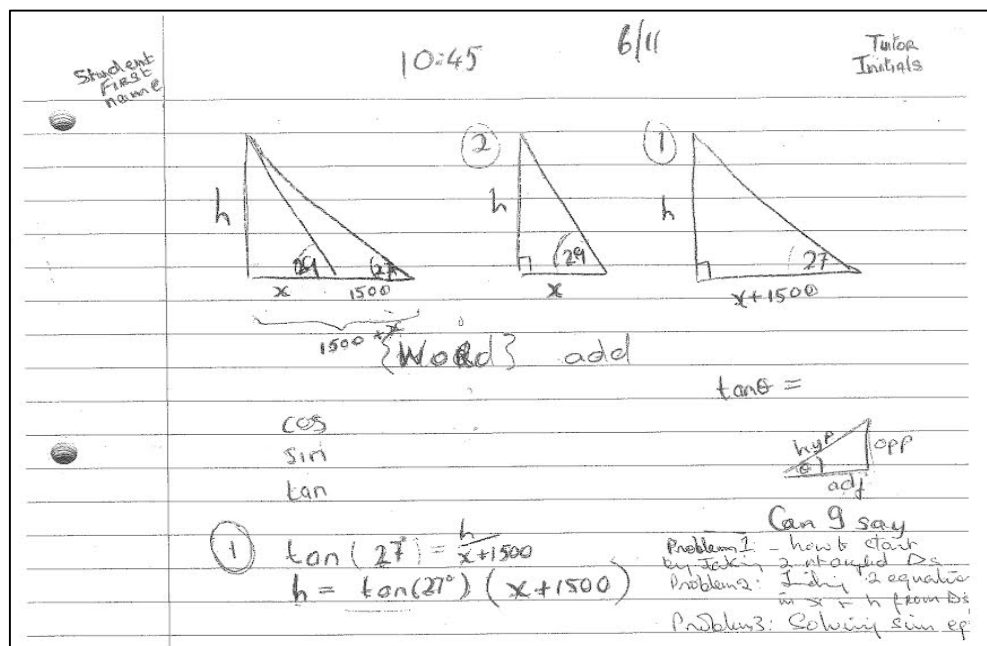 Student
First
name
10:45
6/11
Tutor
Initials
h
29
27
x
1500
1500 + x
2
h
29
x
1
h
27
x+1500
{Word} add
tanθ =
cos
sin
tan
hyp
opp
θ
adj
1
tan(27°) = h
x+1500
h = tan(27°) (x+1500)
Can I say
Problem 1 - how to start
by 2 rt angled Δs
Problem 2: 2 equatio
in x + h from Δs
Problem 3: Solving sim eq